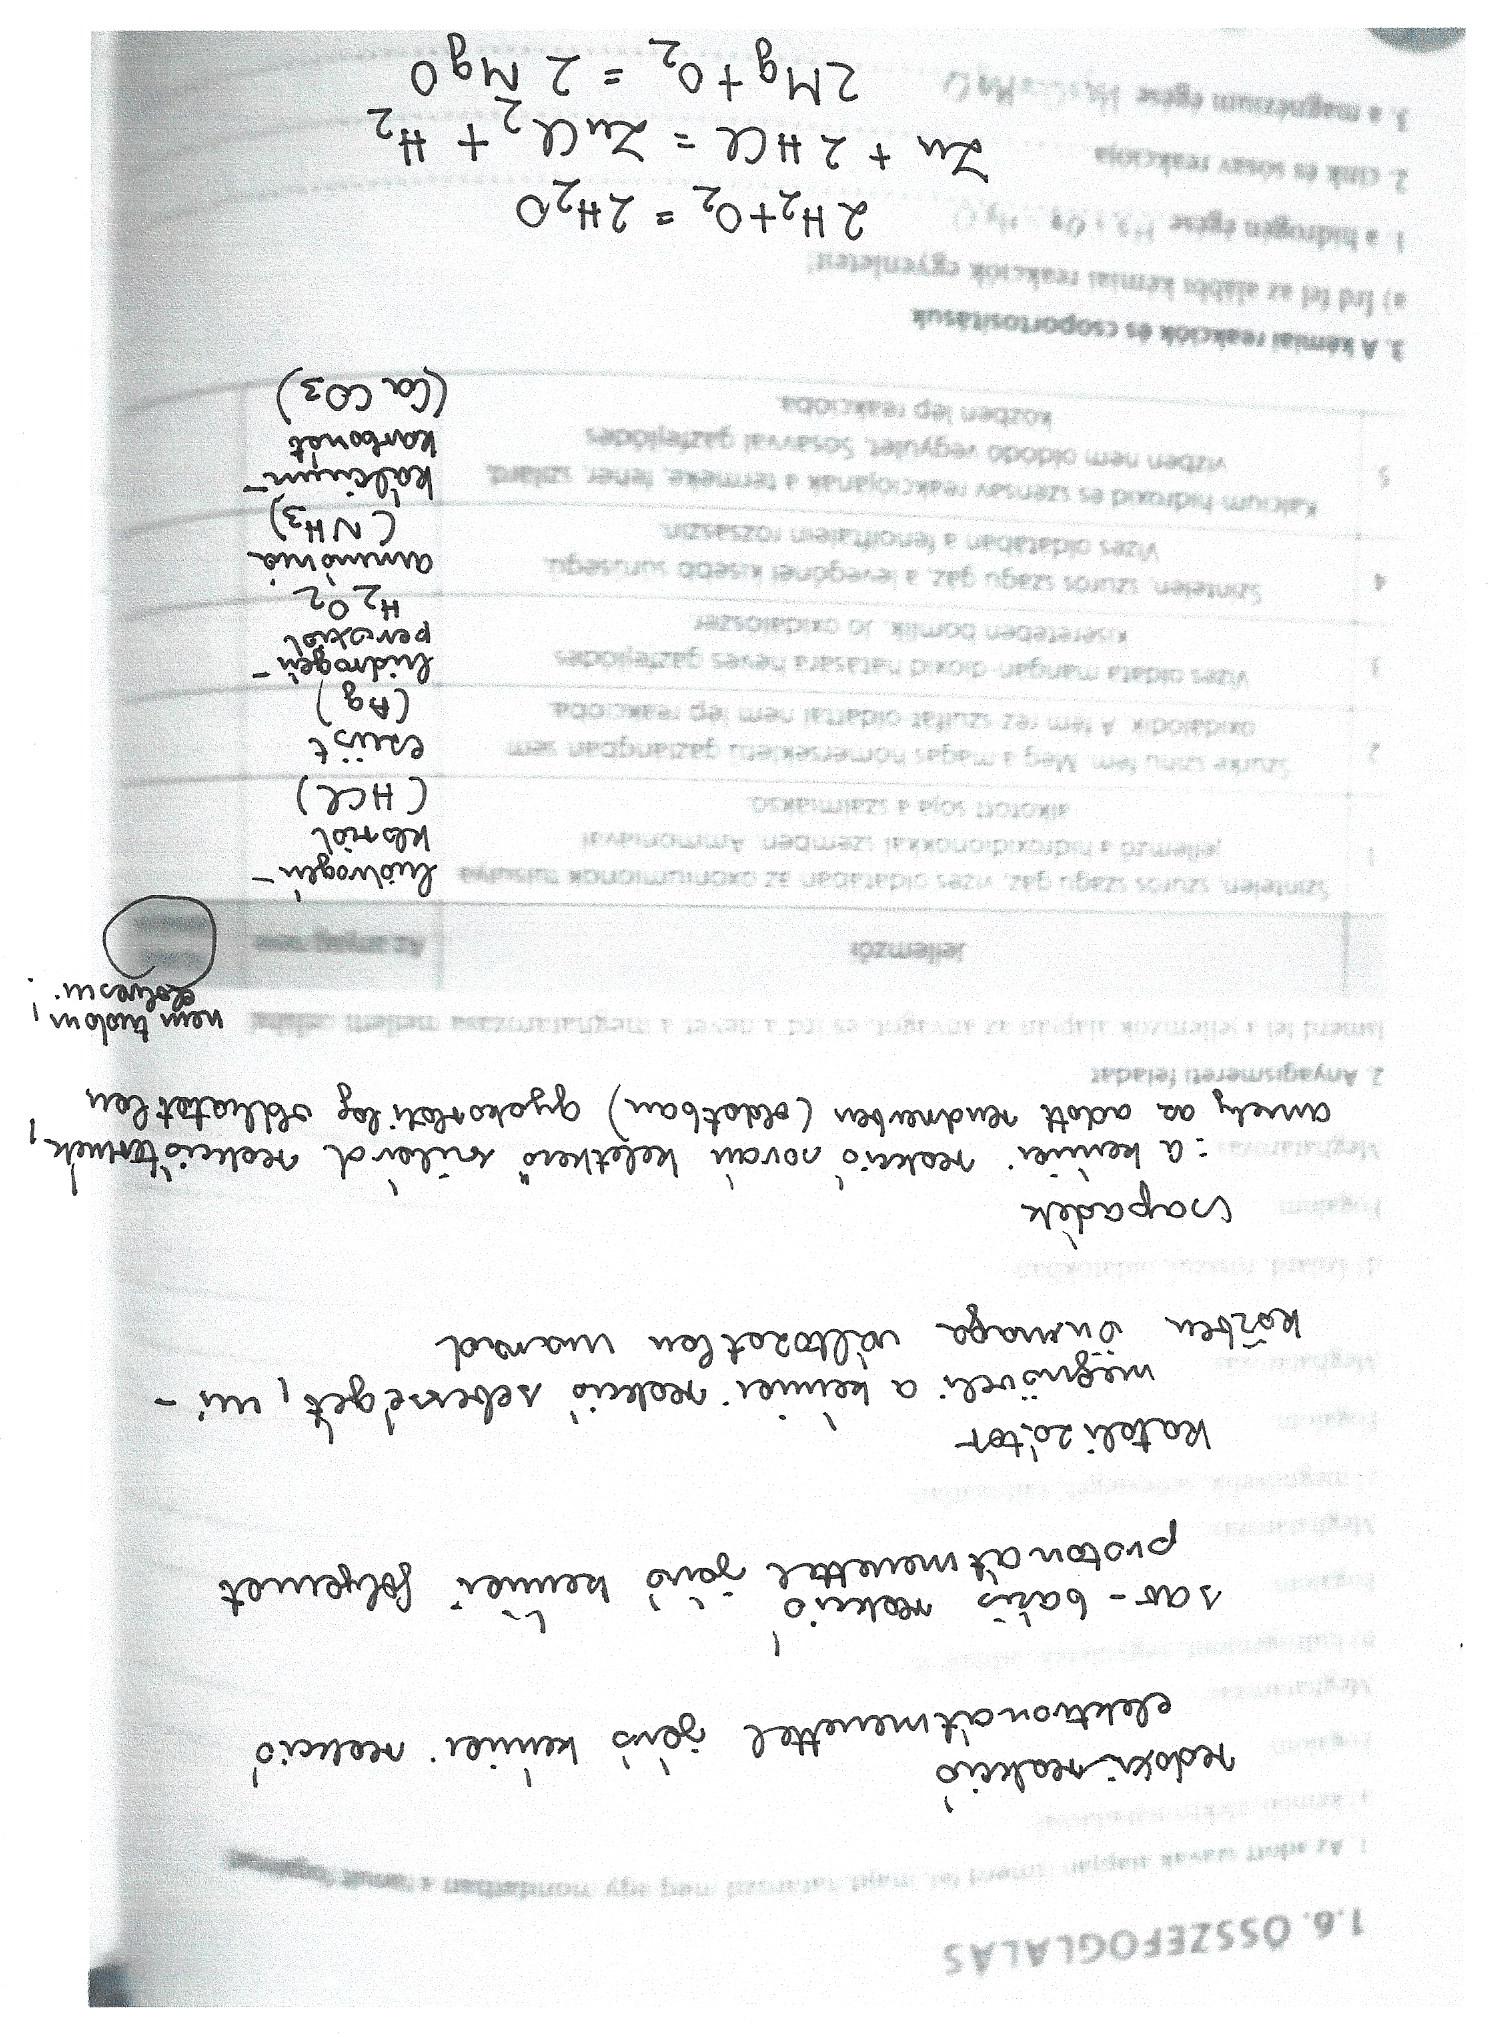 1.6. ÖSSZEFOGLALÁS
1. Az adott szavak alapján ismerd fel, majd határozd meg egy mondatban a tanult fogalmat!
Fogalom:
redoxireakció
elektronátmenettel járó kémiai reakció
Fogalom:
sav-bázis reakció
protonátmenettel járó kémiai folyamat
Fogalom:
katalizátor
megnöveli a kémiai reakció sebességét, mi-
közben önmaga változatlan marad
Fogalom:
csapadék
: a kémiai reakció során keletkező szilárd reakciótermék,
amely az adott rendszerben (oldatban) gyakorlatilag oldhatatlan
2. Anyagismereti feladat
Ismerd fel a jellemzők alapján az anyagot, és írd a nevét a meghatározása melletti cellába!
nem tudom
elolvasni.
Jellemzői
Az anyag neve
1 Színtelen, szúrós szagú gáz, vizes oldatában az oxóniumionok túlsúlya
jellemző a hidroxidionokkal szemben. Ammóniával
alkotott sója a szalmiáksó.
hidrogén-
klorid
(HCl)
2 Szürke színű fém. Még a magas hőmérsékletű gázlángban sem
oxidálódik. A fém réz-szulfát oldattal nem lép reakcióba.
ezüst
(Ag)
3 Vizes oldata mangán-dioxid hatására heves gázfejlődés
kíséretében bomlik. Jó oxidálószer.
hidrogén-
peroxid
H2O2
4 Színtelen, szúrós szagú gáz, a levegőnél kisebb sűrűségű.
Vizes oldatában a fenolftalein rózsaszín.
ammónia
(NH3)
5 Kalcium-hidroxid és szénsav reakciójának a terméke, fehér, szilárd,
vízben nem oldódó vegyület. Sósavval gázfejlődés
közben lép reakcióba.
kálcium-
karbonát
(CaCO3)
3. A kémiai reakciók és csoportosításuk
a) Írd fel az alábbi kémiai reakciók egyenletét!
1. a hidrogén égése
2H2+O2 = 2H2O
2. cink és sósav reakciója
Zn + 2HCl = ZnCl2 + H2
3. a magnézium égése
2Mg+O2 = 2MgO